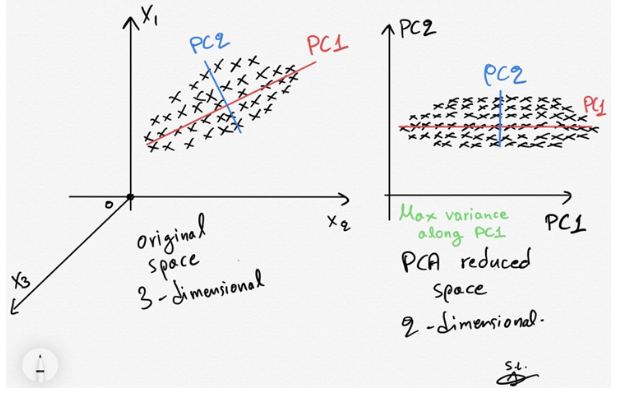 X₁
PC2
PC1
0
X₂
X₃
original
space
3-dimensional
PC2
PC2
PC1
PC1
Max variance
along PC1
PCA reduced
space
2-dimensional.
s.t.